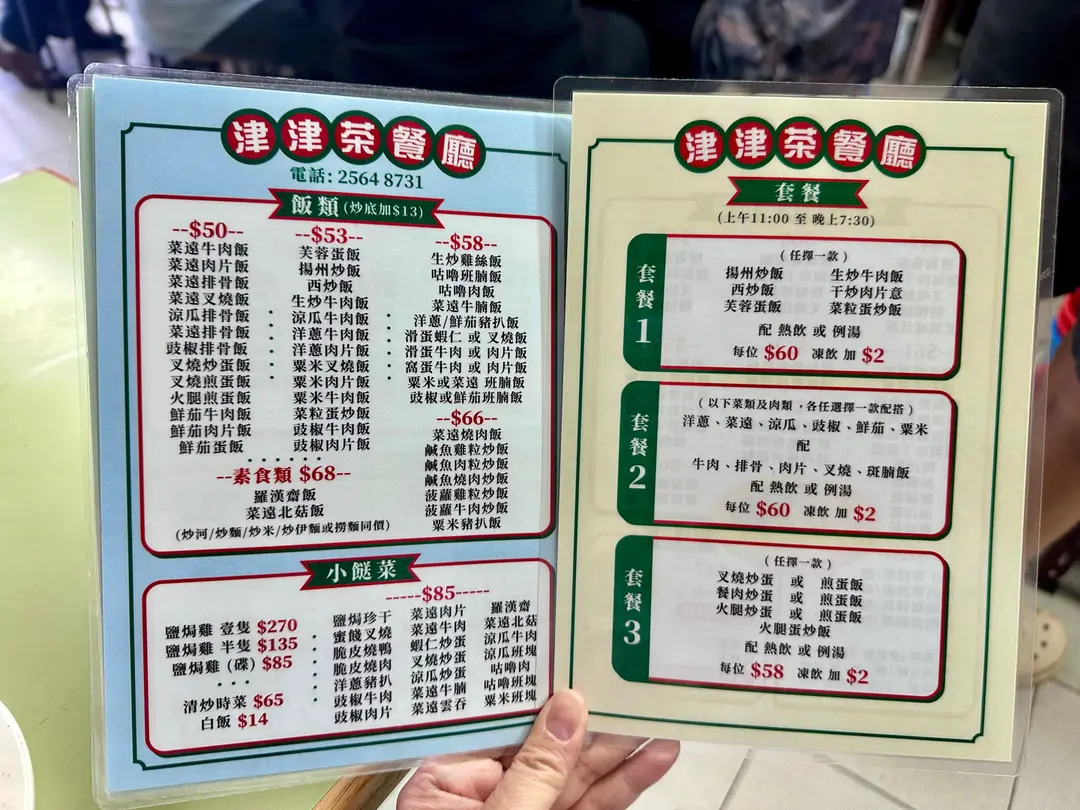 津津茶餐廳
電話: 2564 8731
飯類 (炒底加$13)
--$50--
菜遠牛肉飯
菜遠肉片飯
菜遠排骨飯
菜遠叉燒飯
涼瓜排骨飯
菜遠排骨飯
豉椒排骨飯
叉燒炒蛋飯
叉燒煎蛋飯
火腿煎蛋飯
鮮茄牛肉飯
鮮茄肉片飯
鮮茄蛋飯
--$53--
芙蓉蛋飯
揚州炒飯
西炒飯
生炒牛肉飯
涼瓜牛肉飯
洋蔥牛肉飯
洋蔥肉片飯
粟米叉燒飯
粟米肉片飯
粟米牛肉飯
菜粒蛋炒飯
豉椒牛肉飯
豉椒肉片飯
--$58--
生炒雞絲飯
咕嚕班腩飯
咕嚕肉飯
菜遠牛腩飯
洋蔥/鮮茄豬扒飯
滑蛋蝦仁 或 叉燒飯
滑蛋牛肉 或 肉片飯
窩蛋牛肉 或 肉片飯
粟米或菜遠 班腩飯
豉椒或鮮茄班腩飯
--$66--
菜遠燒肉飯
鹹魚雞粒炒飯
鹹魚肉粒炒飯
鹹魚燒肉炒飯
菠蘿雞粒炒飯
菠蘿牛肉炒飯
粟米豬扒飯
--素食類 $68--
羅漢齋飯
菜遠北菇飯
(炒河/炒麵/炒米/炒伊麵或撈麵同價)
小餸菜
鹽焗雞 壹隻 $270
鹽焗雞 半隻 $135
鹽焗雞 (碟) $85
清炒時菜 $65
白飯 $14
-----$85-----
鹽焗珍干
蜜餞叉燒
脆皮燒鴨
脆皮燒肉
洋蔥豬扒
豉椒牛肉
豉椒肉片
菜遠肉片
菜遠牛肉
蝦仁炒蛋
叉燒炒蛋
涼瓜炒蛋
菜遠牛腩
菜遠雲吞
羅漢齋
菜遠北菇
涼瓜牛肉
涼瓜班塊
咕嚕肉
咕嚕班塊
粟米班塊
津津茶餐廳
套餐
(上午11:00 至 晚上7:30)
套餐1
(任擇一款)
揚州炒飯 生炒牛肉飯
西炒飯 干炒肉片意
芙蓉蛋飯 菜粒蛋炒飯
配 熱飲 或 例湯
每位 $60 凍飲 加 $2
套餐2
(以下菜類及肉類，各任選擇一款配搭)
洋蔥、菜遠、涼瓜、豉椒、鮮茄、粟米
配
牛肉、排骨、肉片、叉燒、斑腩飯
配 熱飲 或 例湯
每位 $60 凍飲 加 $2
套餐3
(任擇一款)
叉燒炒蛋 或 煎蛋飯
餐肉炒蛋 或 煎蛋飯
火腿炒蛋 或 煎蛋飯
火腿蛋炒飯
配 熱飲 或 例湯
每位 $58 凍飲 加 $2